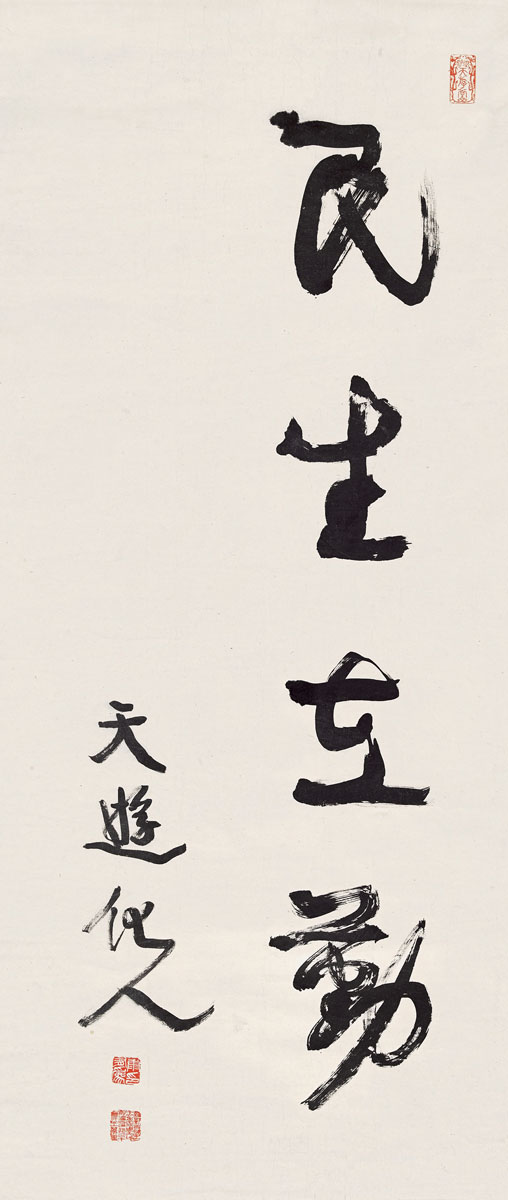 民生在勤
天遊化人